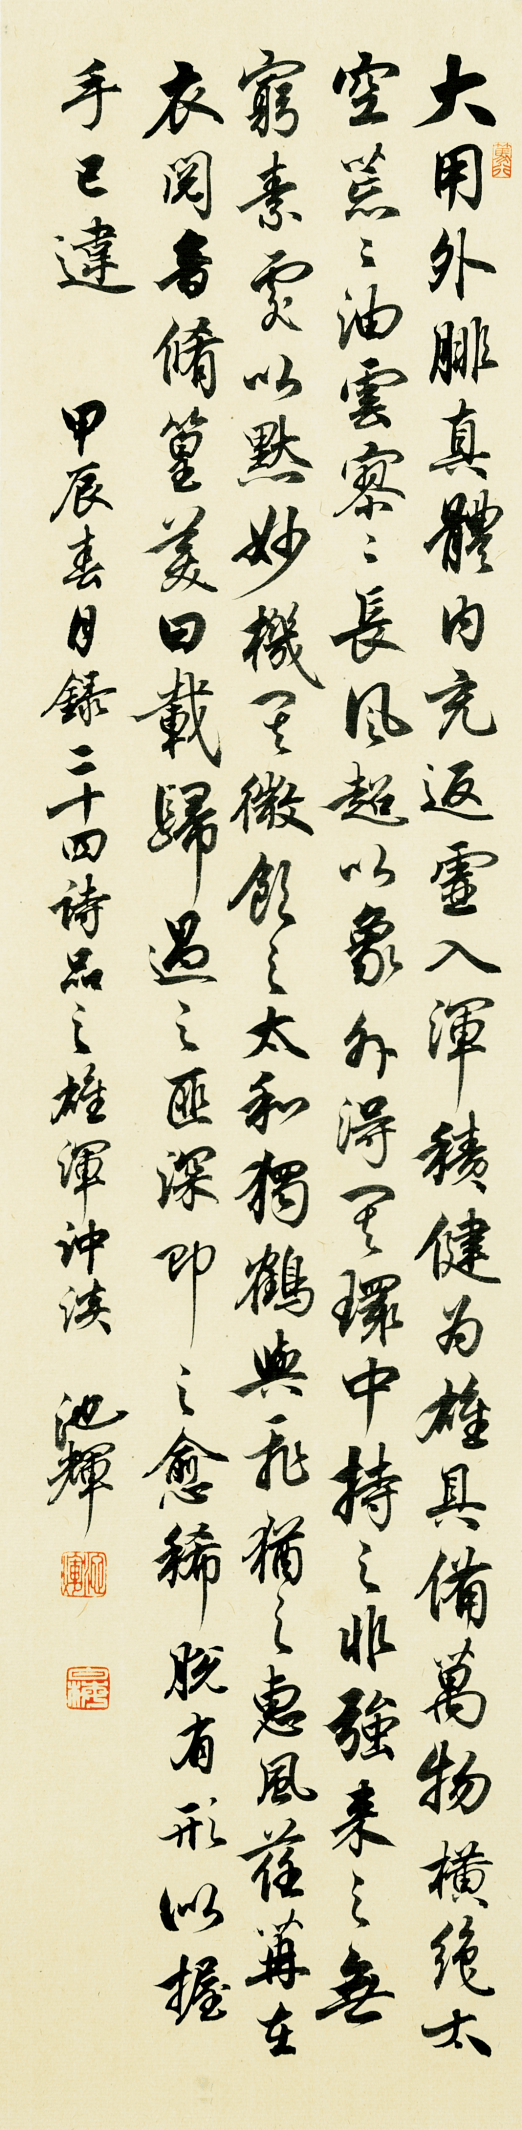 大用外腓真體内充返虛入渾積健為雄具備萬物橫絕太
空荒〻油雲寥〻長風超以象外得其環中持之非強来之無
窮素處以默妙機其微飲之太和獨鶴與飛猶之惠風荏苒在
衣閱音脩篁美曰載歸遇之匪深即之愈稀脫有形似握
手已違 甲辰春月錄二十四詩品之雄渾沖淡 池輝